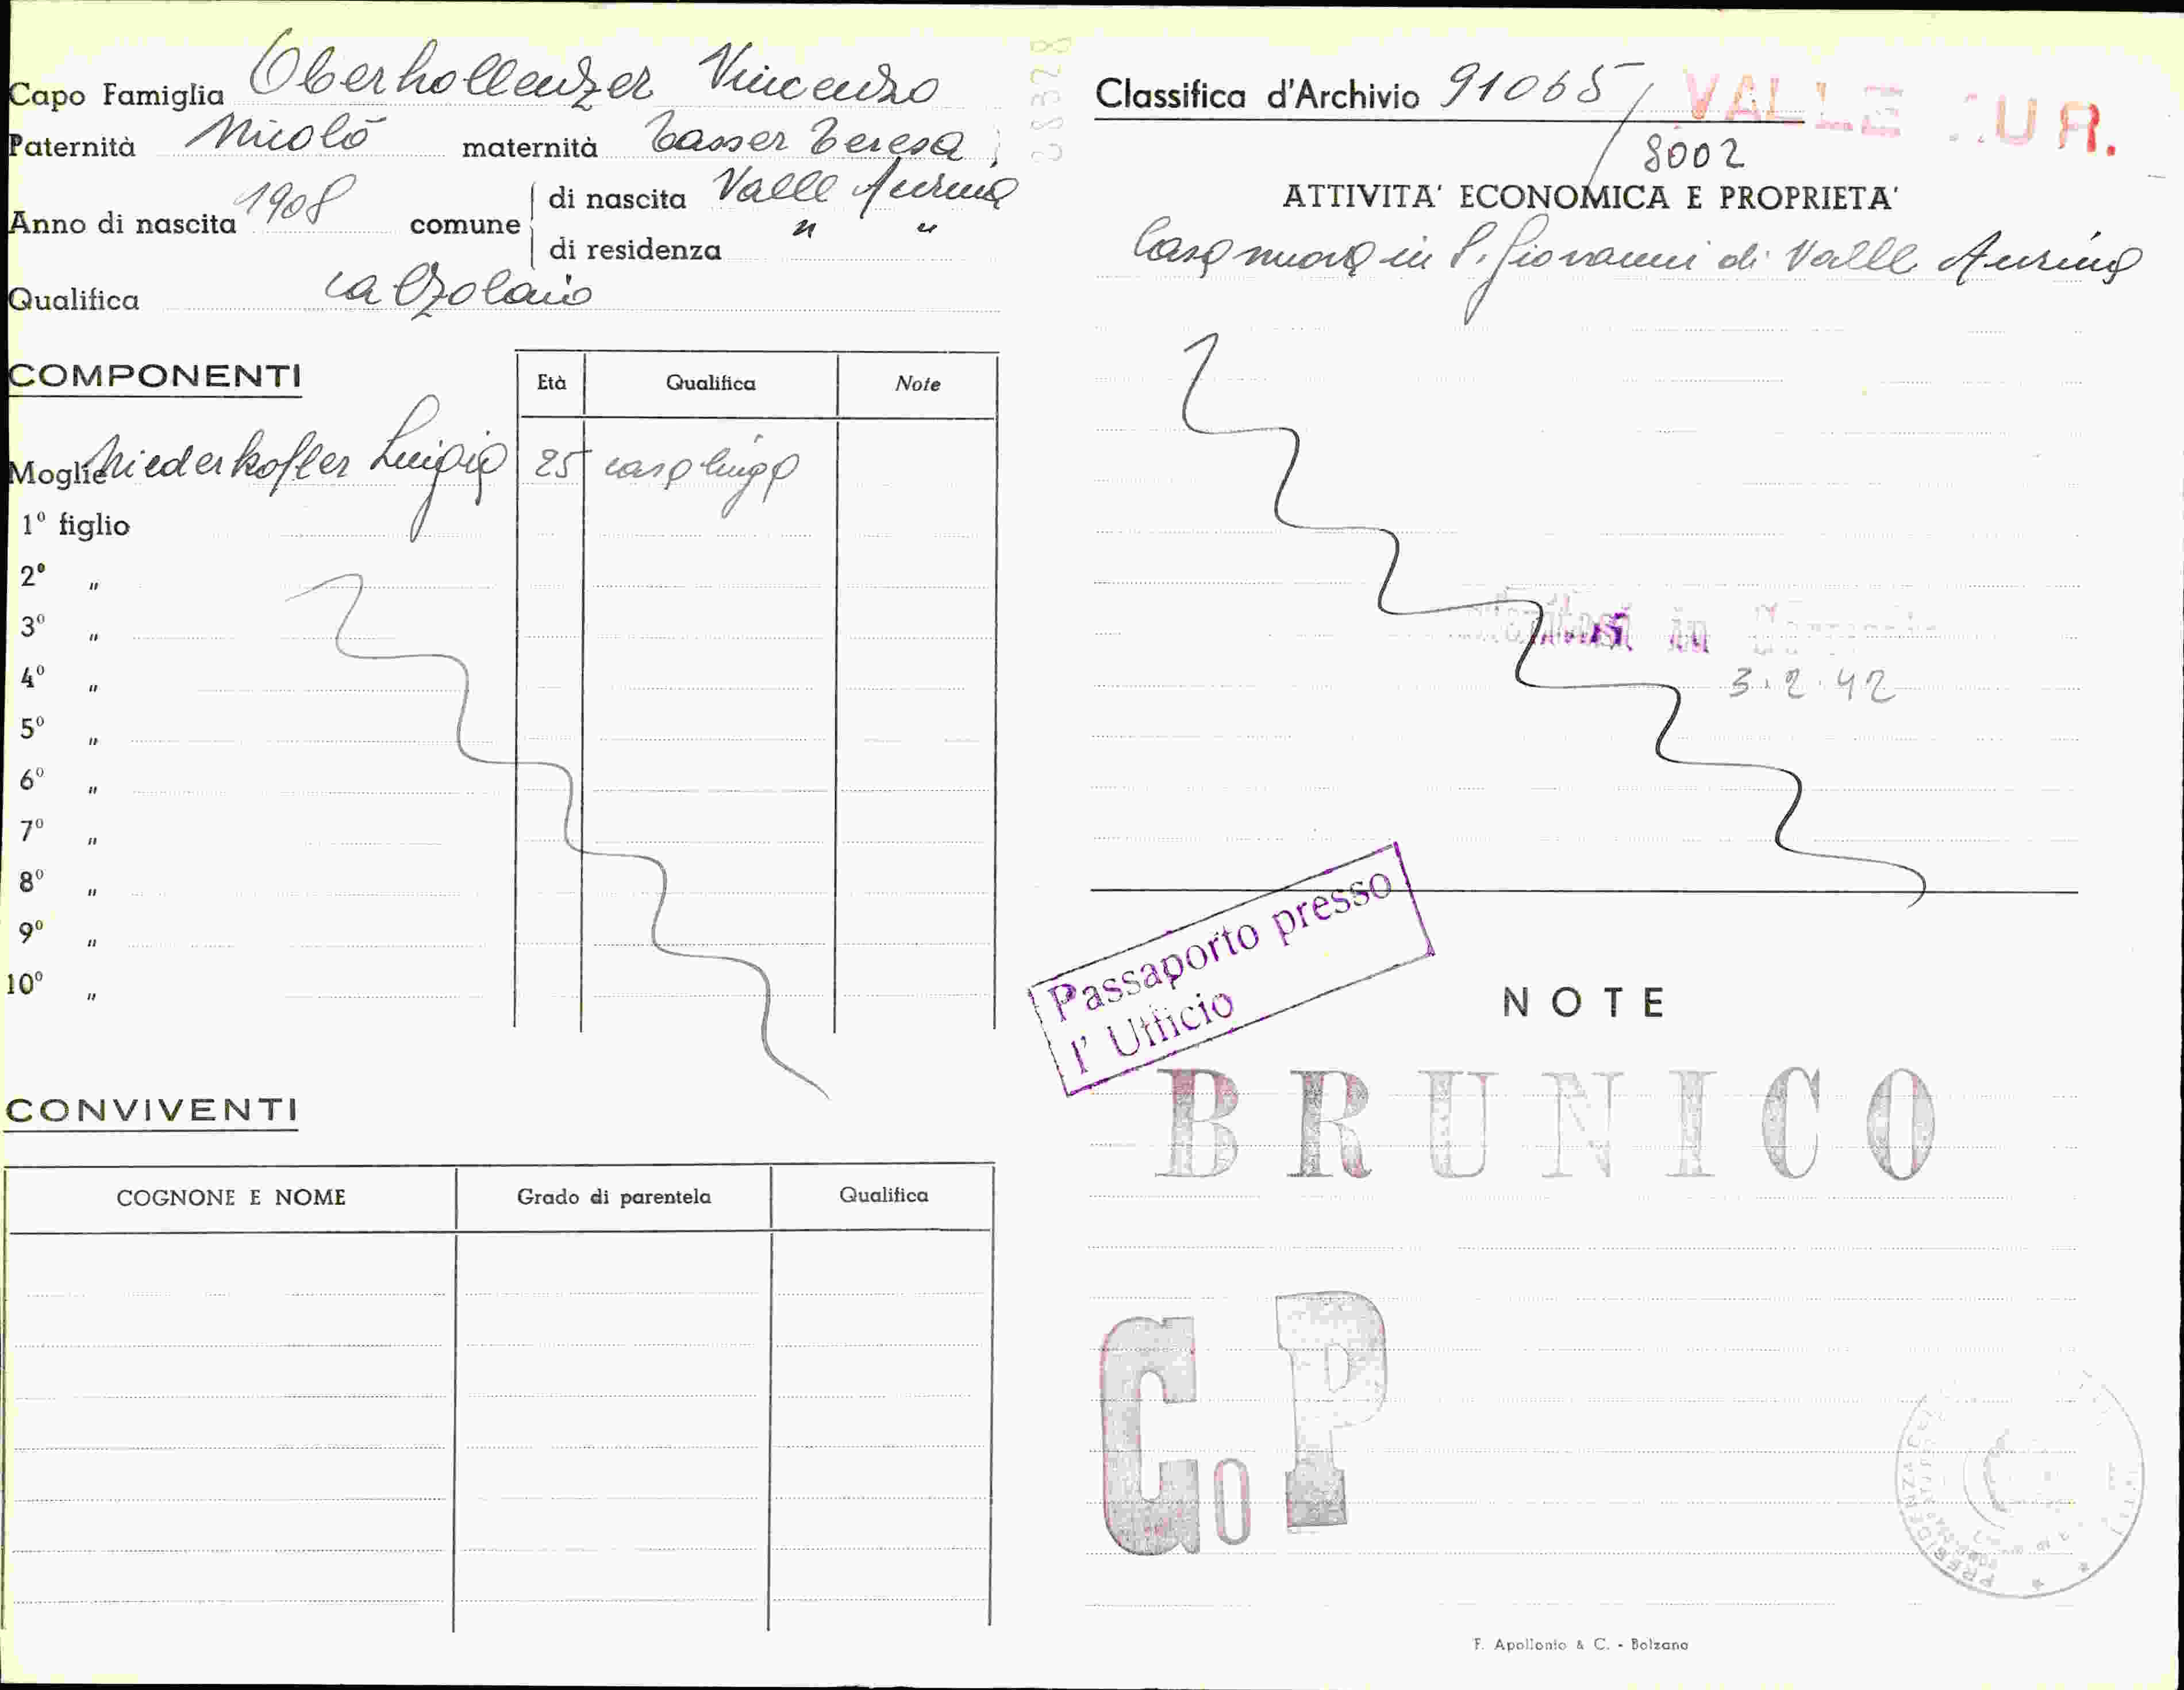 Capo Famiglia Oberhollenzer Vincenzo
Paternità Nicolò maternità Tasser Teresa
Anno di nascita 1908 comune di nascita Valle Aurina
di residenza " "
Qualifica calzolaio
COMPONENTI
Età Qualifica Note
Moglie Niederkofler Luigia 25 casalinga
1º figlio
2º "
3º "
4º "
5º "
6º "
7º "
8º "
9º "
10º "
CONVIVENTI
COGNONE E NOME Grado di parentela Qualifica
28328
Classifica d'Archivio 91065 /
8002
VALLE AUR.
ATTIVITA' ECONOMICA E PROPRIETA'
Casa nuova in S. Giovanni di Valle Aurina
in
3.2.42
Passaporto presso
l' Ufficio
NOTE
BRUNICO
Co P
F. Apollonio & C. - Bolzano